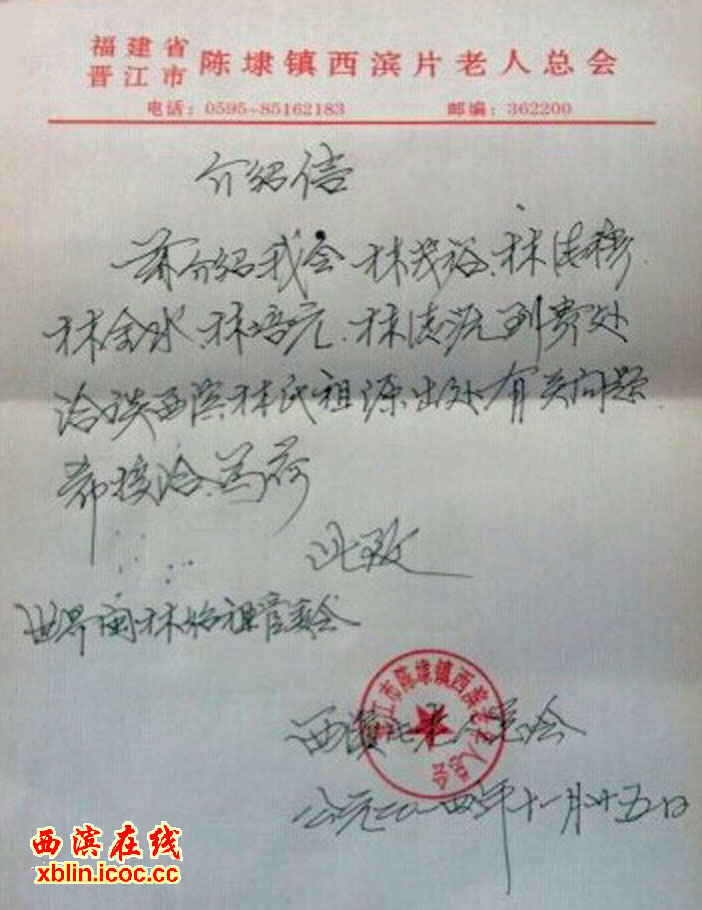 福建省
晋江市 陈埭镇西滨片老人总会
电话：0595-85162183 邮编：362200
介绍信
兹介绍我会 林茂裕、林清
林金水、林培元、林清流到贵处
洽谈西滨林氏祖源出处有关问题
希接洽为荷
此致
世界闽林始祖管委会
江市陈埭镇西滨片老人总会
西滨片老人总会
公元二〇一四年十一月廿五日
西滨在线
xblin.icoc.cc